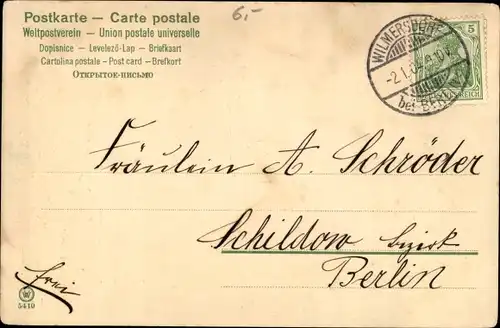 Postkarte — Carte postale
Weltpostverein — Union postale universelle
Dopisnice — Levelező-Lap — Briefkaart
Cartolina postale - Post card — Brefkort
ОТКРЫТОЕ-ПИСЬМО
6,-
WILMERSDORF
bei BERLIN
5
REICH
Fräulein A. Schröder
Schildow bezirk
Berlin
frei
5410